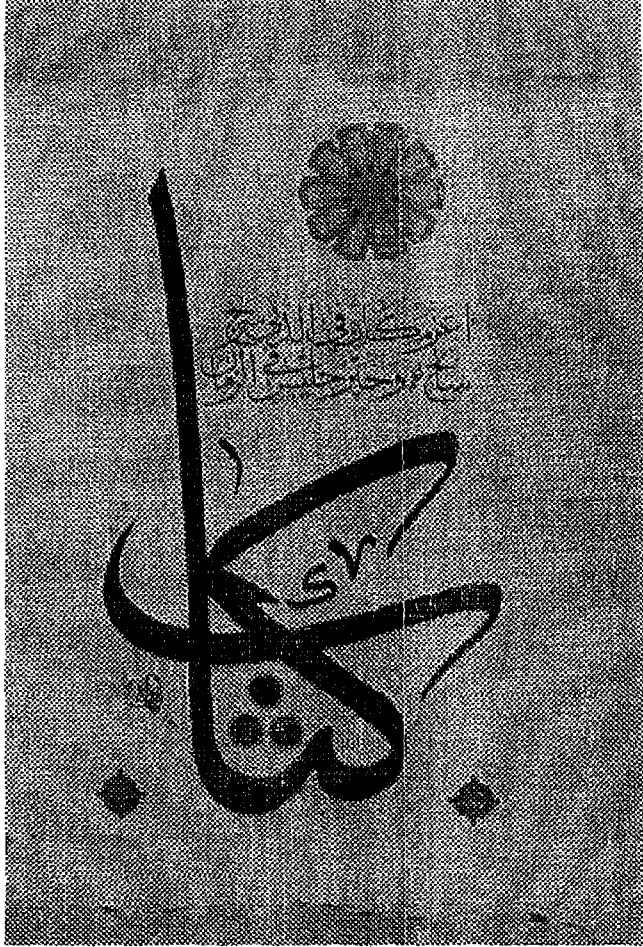 اعز مكان في الدنى سرج
سابح وخير جليس في الزمان
كتاب